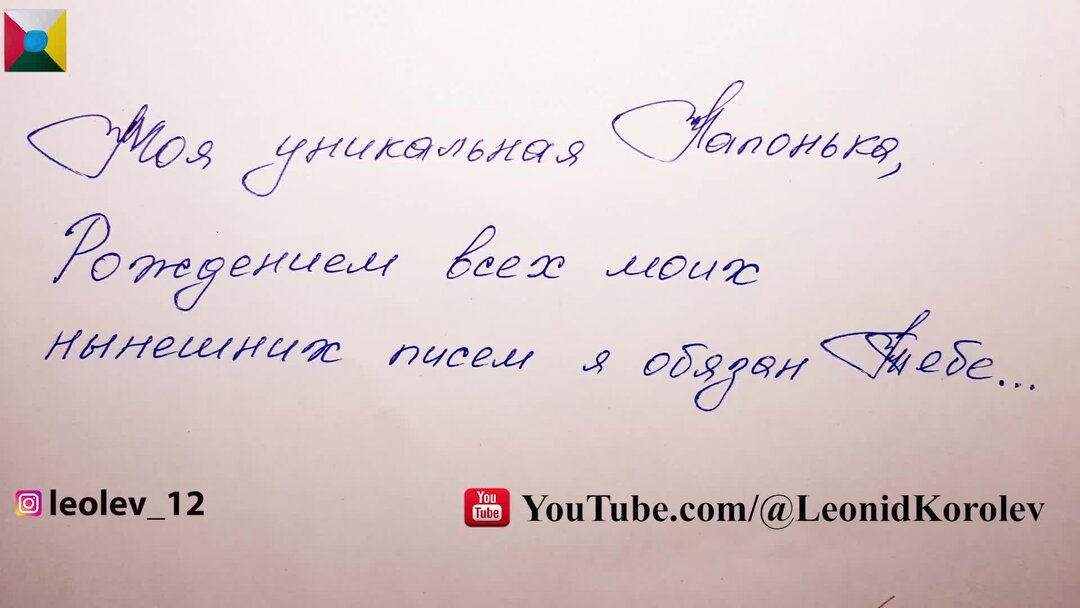 Моя уникальная Лапонька,
Рождением всех моих
нынешних писем я обязан Тебе...
leolev_12
You Tube YouTube.com/@LeonidKorolev